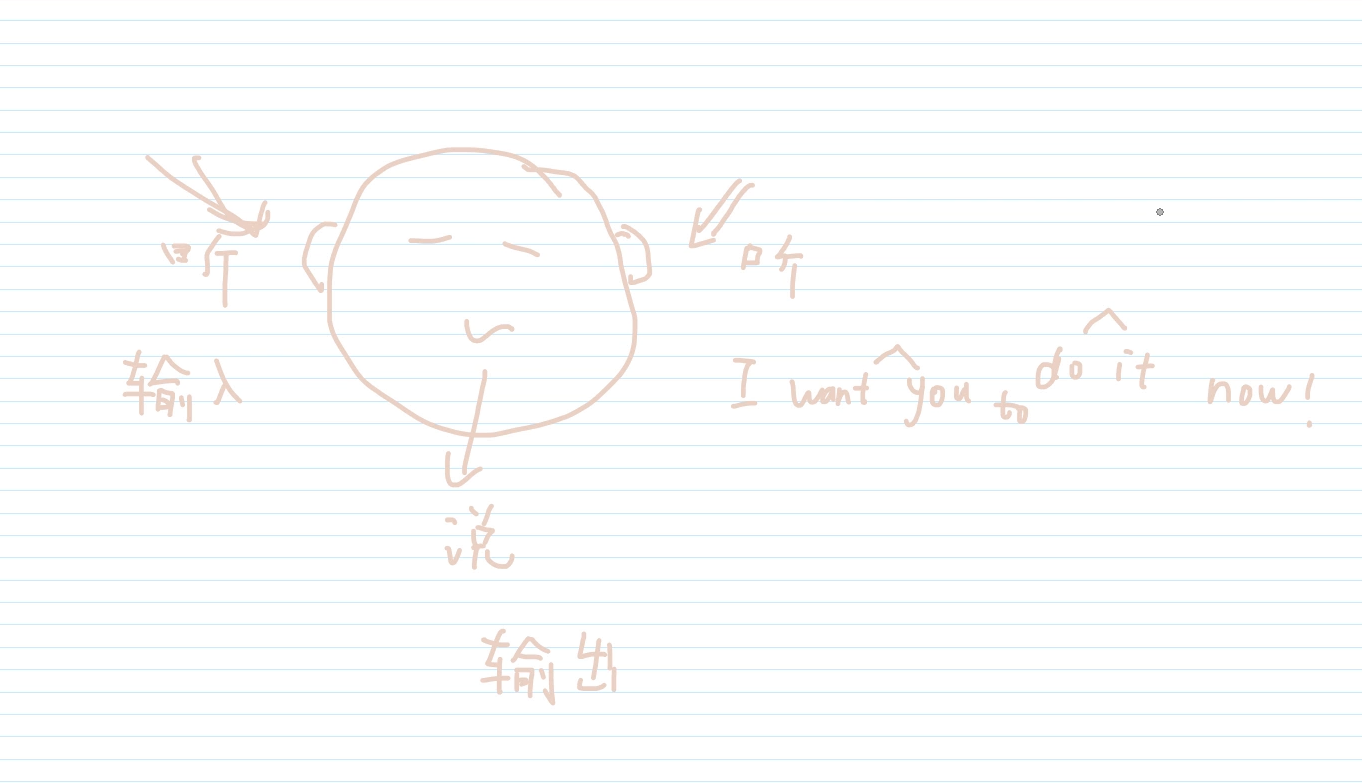 听
听
输入
I want you to do it now!
说
输出